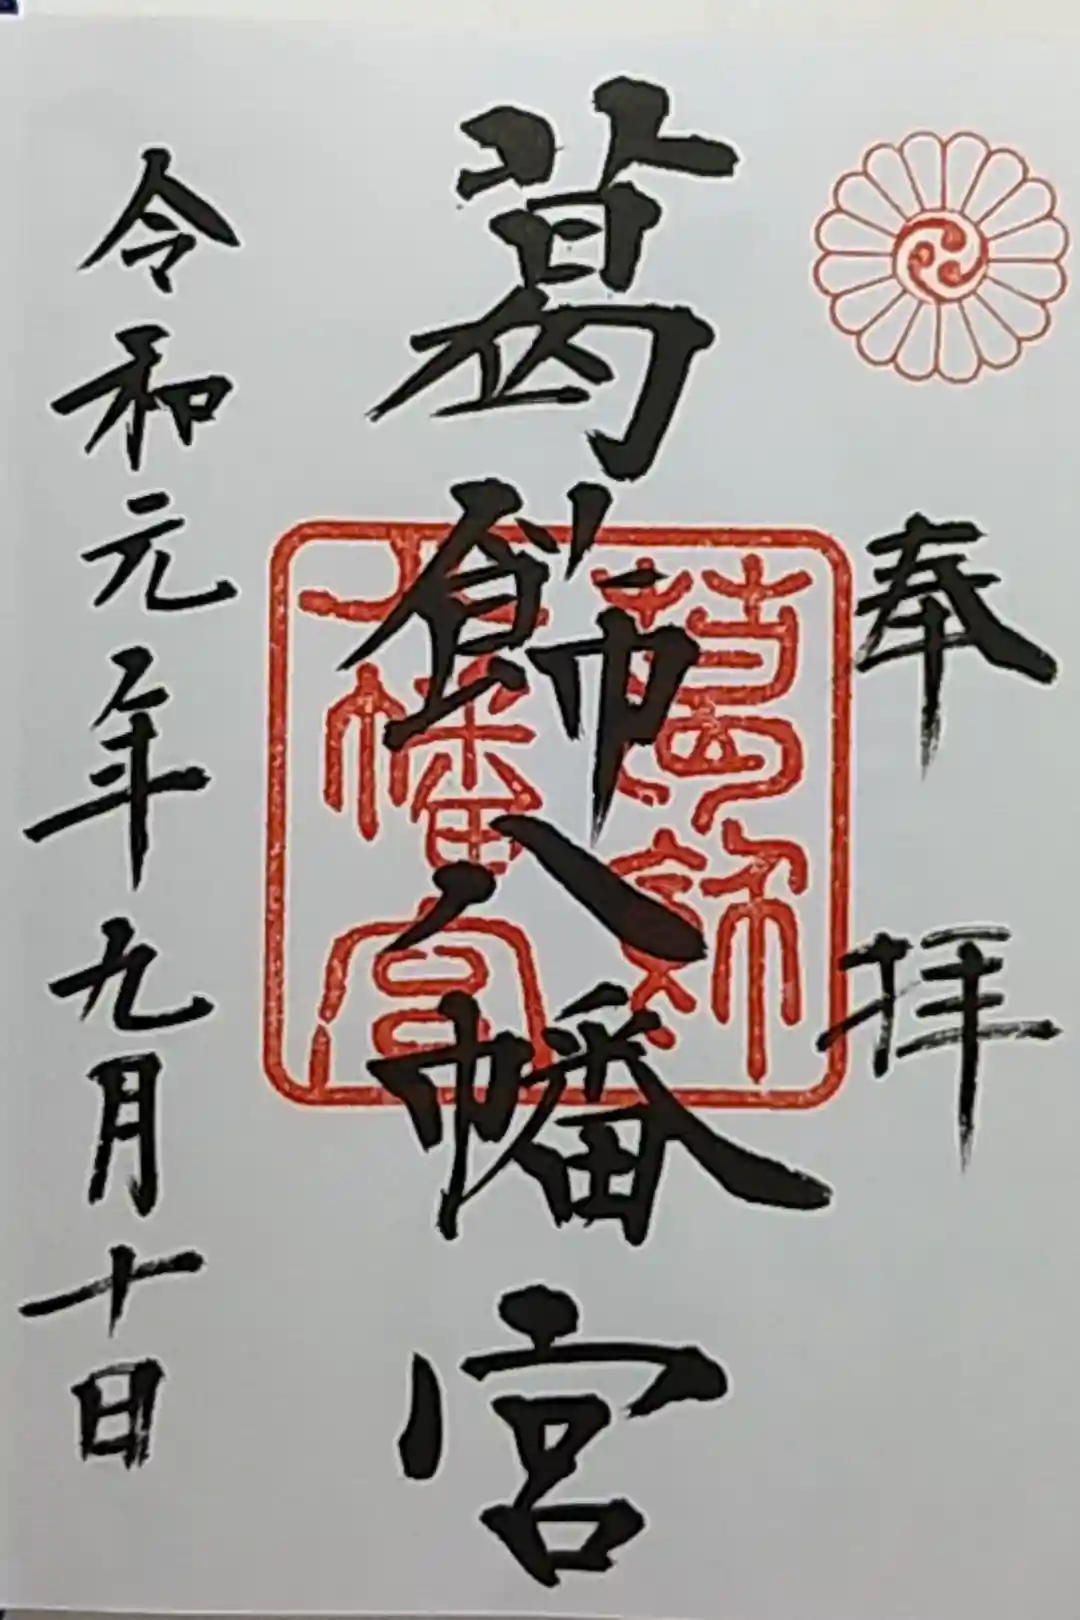 奉拝
葛飾八幡宮
葛飾
八幡宮
令和元年九月十日